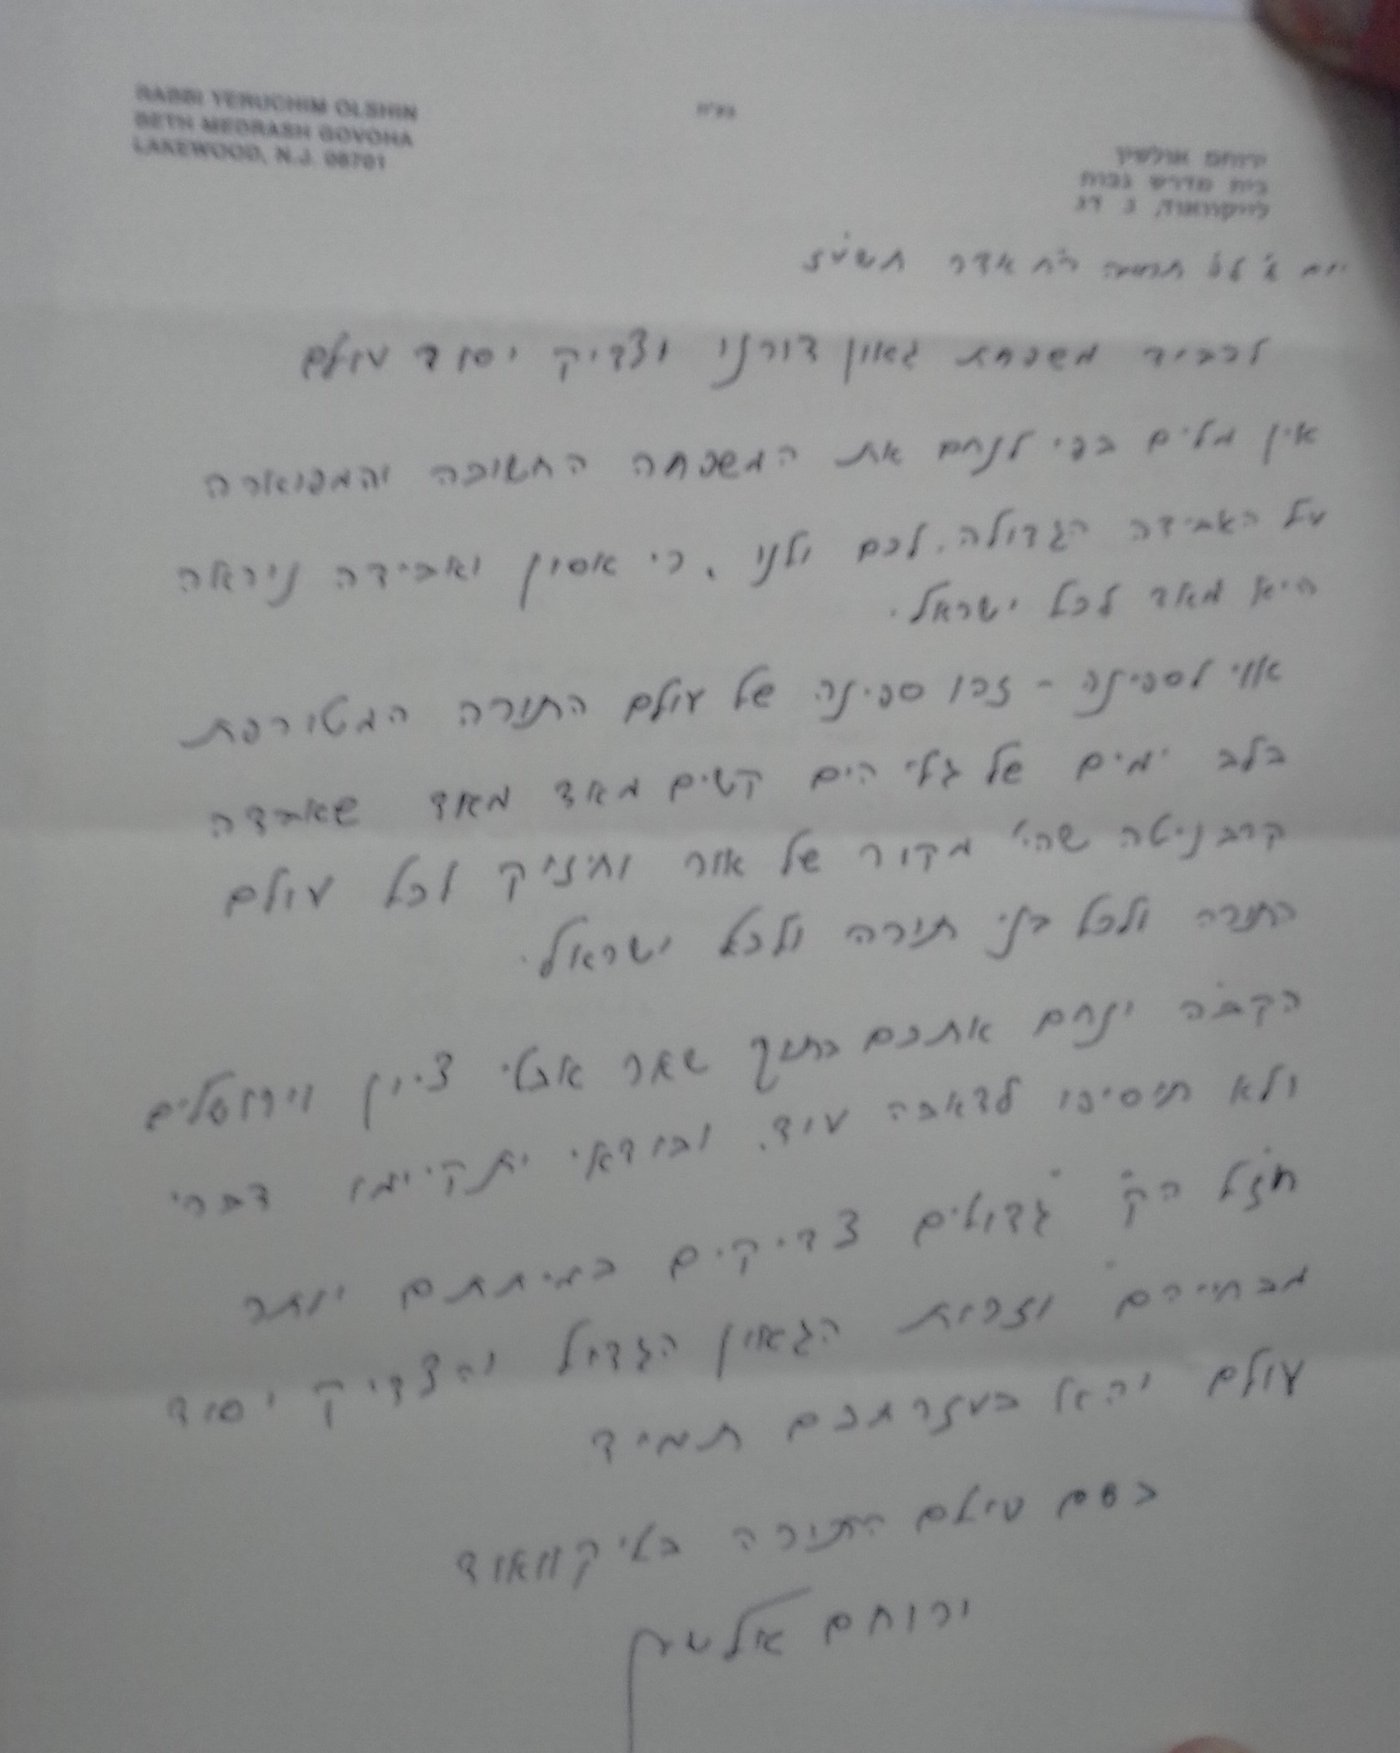 RABBI YERUCHIM OLSHIN
BETH MEDRASH GOVOHA
LAKEWOOD, N.J. 08701
בע"ה
ירוחם אולשין
בית מדרש גבוה
לייקוואוד, נ. דז.
יום ב' לס' תרומה ר"ח אדר תשע"ז
לכביד משפחת גאון דורנו וצדיק יסוד עולם
אין מלים בפי לנחם את המשפחה החשובה והמפוארה
על האבידה הגדולה. לכם ולנו, כי אסון ואבידה ניראה
היא מאד לכל ישראל.
אוי לספינה - זהו ספינה של עולם התורה המטורפת
בלב ימים של גלי הים קשים מאד מאד שאבדה
קברניטה שהי' מקור של אור וחיזיק לכל עולם
התורה ולכל בני תורה ולכל ישראל.
הקב"ה ינחם אתכם בתוך שאר אבלי ציון וירושלים
ולא תוסיפו לדאבה עוד. ובודאי יתקיימו דברי
חז"ל הק' "גדולים צדיקים במיתתם יותר
מבחייהם" וזכות הגאון הגדול והצדיק יסוד
עולם יהא בעזרתכם תמיד
בשם עולם התורה בלייקוואוד
ירוחם אלשין